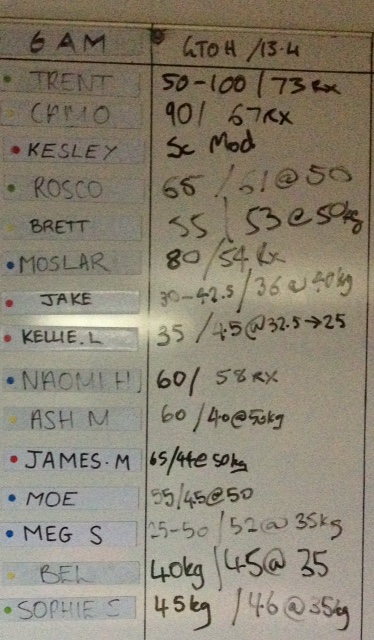 6 AM GTOH /13.4
TRENT 50-100 / 73 Rx
CAMO 90/ 67 RX
KESLEY Sc Mod
ROSCO 65 / 61 @ 50
BRETT 55 / 53 @ 50kg
MOSLAR 80 / 54 Rx
JAKE 30-42.5 / 36 @ 40kg
KELLIE.L 35 / 45 @ 32.5 → 25
NAOMI H 60/ 58 RX
ASH M 60 / 40 @ 50kg
JAMES.M 65/44@ 50kg
MOE 55/45@50
MEG S 25-50 / 52 @ 35kg
BEL 40kg / 45 @ 35
SOPHIE S 45kg / 46 @ 35kg